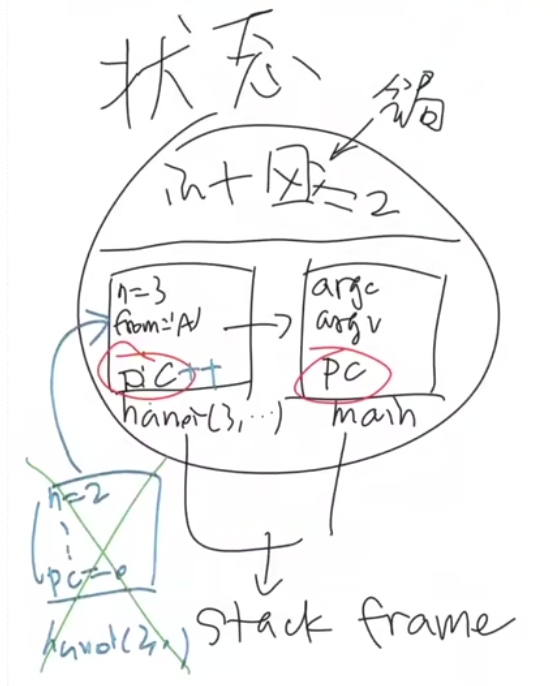 状态
int x = 2
n=3
from='A'
pc++
hanoi(3,...)
argc
argv
pc
main
n=2
pc=0
hanoi(2,)
stack frame